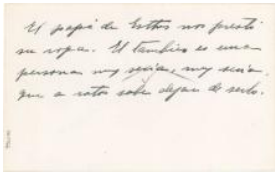 El papá de Esther nos prestó
su ropa. El también es una
persona muy seria, muy seria.
que a ratos sabe dejar de serlo.